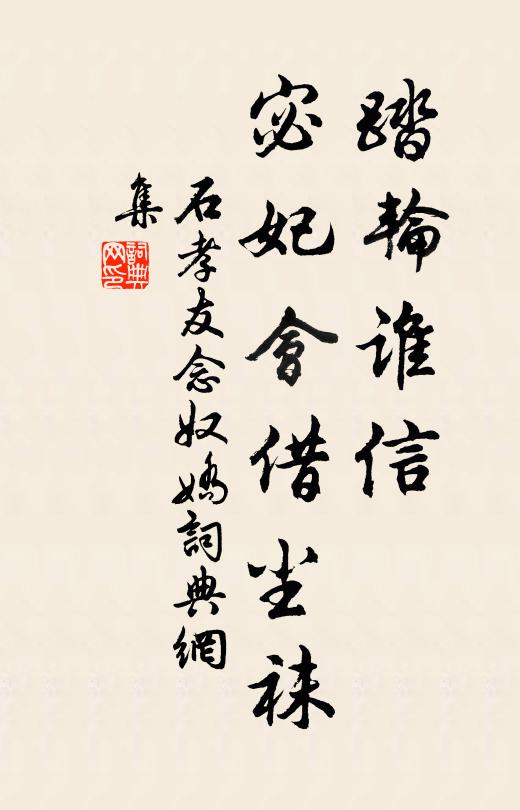 踏輪誰信
宓妃會借尘袜
石孝友念奴嬌詞典網
集
詞典網印